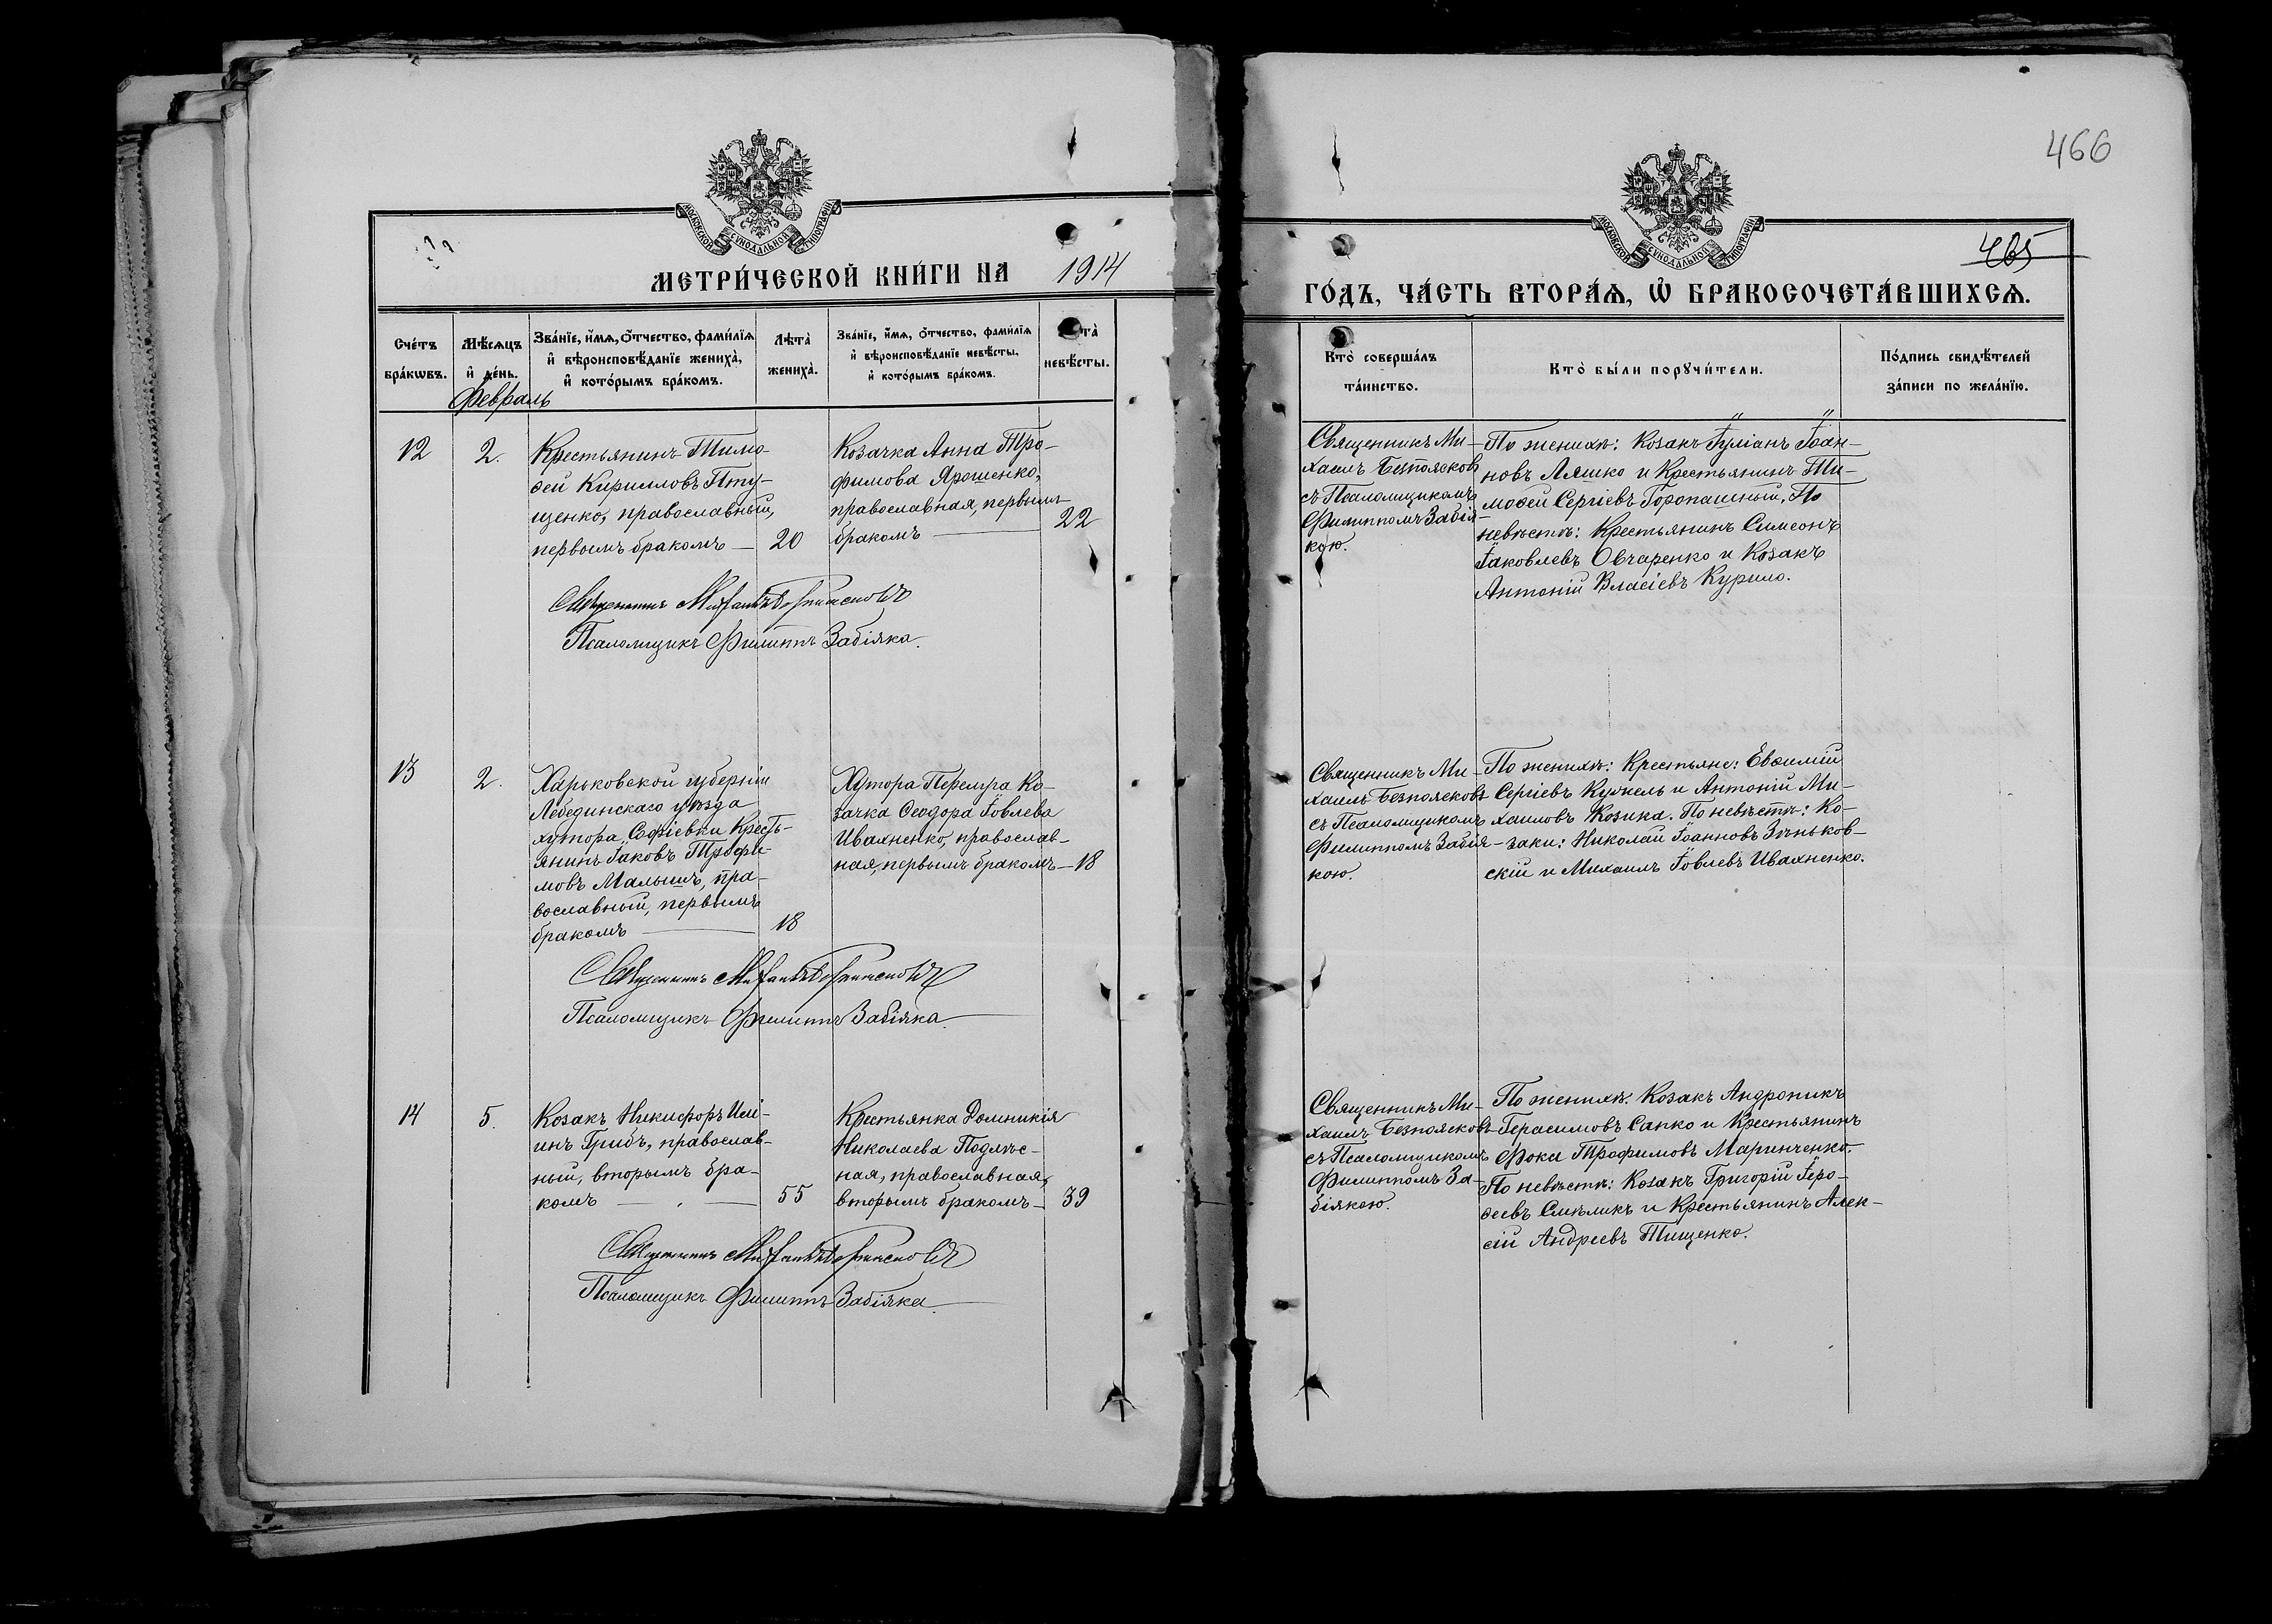 466
МОСКОВСКОЙ СУНОДАЛЬНОЙ ТИПОГРАФІИ
МОСКОВСКОЙ СУНОДАЛЬНОЙ ТИПОГРАФІИ
465
МЕТРИ́ЧЕСКОЙ КНИ́ГИ НА 1914
ГО́ДЪ, ЧА́СТЬ ВТОРА́Ѧ, Ѽ БРАКОСОЧЕТА́ВШИХСѦ.
Сче́тъ бра́кѡвъ.
Мѣ́сѧцъ и҆ де́нь.
Зва́нїе, и҆́мѧ, ѻ҆́тчество, фами́лїѧ
и҆ вѣроисповѣ́данїе жениха̀,
и҆ кото́рымъ бра́комъ.
Лѣ́та̀ жениха̀.
Зва́нїе, и҆́мѧ, ѻ҆́тчество, фами́лїѧ
и҆ вѣроисповѣ́данїе невѣ́сты,
и҆ кото́рымъ бра́комъ.
та̀ невѣ́сты.
Кто̀ соверша́лъ
та́инство.
Кто̀ бы́ли порꙋчи́тели.
По́дпись свидѣ́телей
за́писи по жела́нїю.
Февраль
12
2.
Крестьянинъ Тимо-
ѳей Кирилловъ Пту-
щенко, православный,
первымъ бракомъ —
20
Козачка Анна Тро-
фимова Ярошенко,
православная, первымъ
бракомъ —
22
Священникъ Ми-
хаилъ Безпоясковъ
съ Псаломщикомъ
Филиппомъ Забія-
кою.
По женихѣ: Козакъ Іуліанъ Іоан-
новъ Ляшко и Крестьянинъ Ти-
моѳей Сергіевъ Горопашный. По
невѣстѣ: Крестьянинъ Симеонъ
Іаковлевъ Овчаренко и Козакъ
Антоній Власіевъ Курило.
Священникъ Михаилъ Безпоясковъ
Псаломщикъ Филиппъ Забіяка.
13
2.
Харьковской губерніи
Лебединскаго уѣзда
хутора Софіевки Кресть-
янинъ Іаковъ Трофи-
мовъ Малышъ, пра-
вославный, первымъ
бракомъ —
18
Хутора Перелура Ко-
зачка Ѳеодора Іовлева
Ивахненко, православ-
ная, первымъ бракомъ —
18
Священникъ Ми-
хаилъ Безпоясковъ
съ Псаломщикомъ
Филиппомъ Забія-
кою.
По женихѣ: Крестьяне: Евѳимій
Сергіевъ Кужель и Антоній Ми-
хаиловъ Козика. По невѣстѣ: Ко-
заки: Николай Іоанновъ Зѣньков-
скій и Михаилъ Іовлевъ Ивахненко.
Священникъ Михаилъ Безпоясковъ
Псаломщикъ Филиппъ Забіяка.
14
5.
Козакъ Никифоръ Илі-
инъ Грибъ, православ-
ный, вторымъ бра-
комъ —
55
Крестьянка Домникія
Николаева Подлѣс-
ная, православная,
вторымъ бракомъ —
39
Священникъ Ми-
хаилъ Безпоясковъ
съ Псаломщикомъ
Филиппомъ За-
біякою.
По женихѣ. Козакъ Андроникъ
Герасимовъ Сапко и Крестьянинъ
Фока Трофимовъ Маринченко.
По невѣстѣ: Козакъ Григорій Іеро-
ѳеевъ Смѣликъ и Крестьянинъ Алек-
сій Андреевъ Тищенко.
Священникъ Михаилъ Безпоясковъ
Псаломщикъ Филиппъ Забіяка.